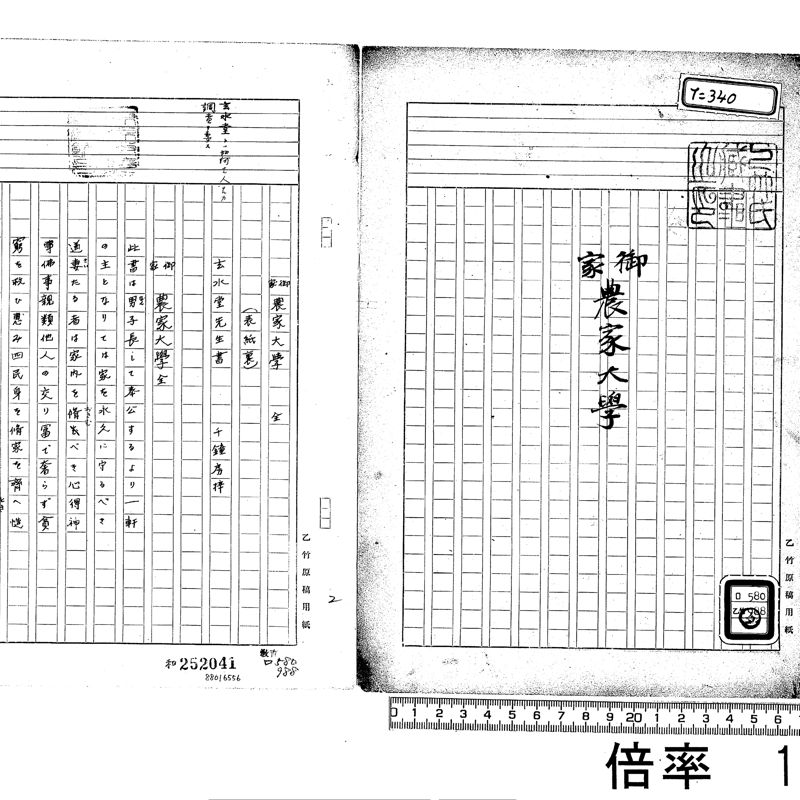 T=340
御家
農家大學
乙竹原稿用紙
ロ 580
988
玄水堂
調査
御家 農家大學 全
(表紙裏)
玄水堂先生書 千鐘房梓
御家 農家大學 全
此書は男子長して奉公するより一軒
の主となりては家を永久に守るべき
道妻たる者は家内を脩むべき心得神
事佛事親類他人の交り冨で奢らず貧
窮を救ひ恵み四民身を脩家を齊へ
乙竹原稿用紙
2
和252041
88016556
ロ580
988
0 1 2 3 4 5 6 7 8 9 20 1 2 3 4 5 6
倍率 1